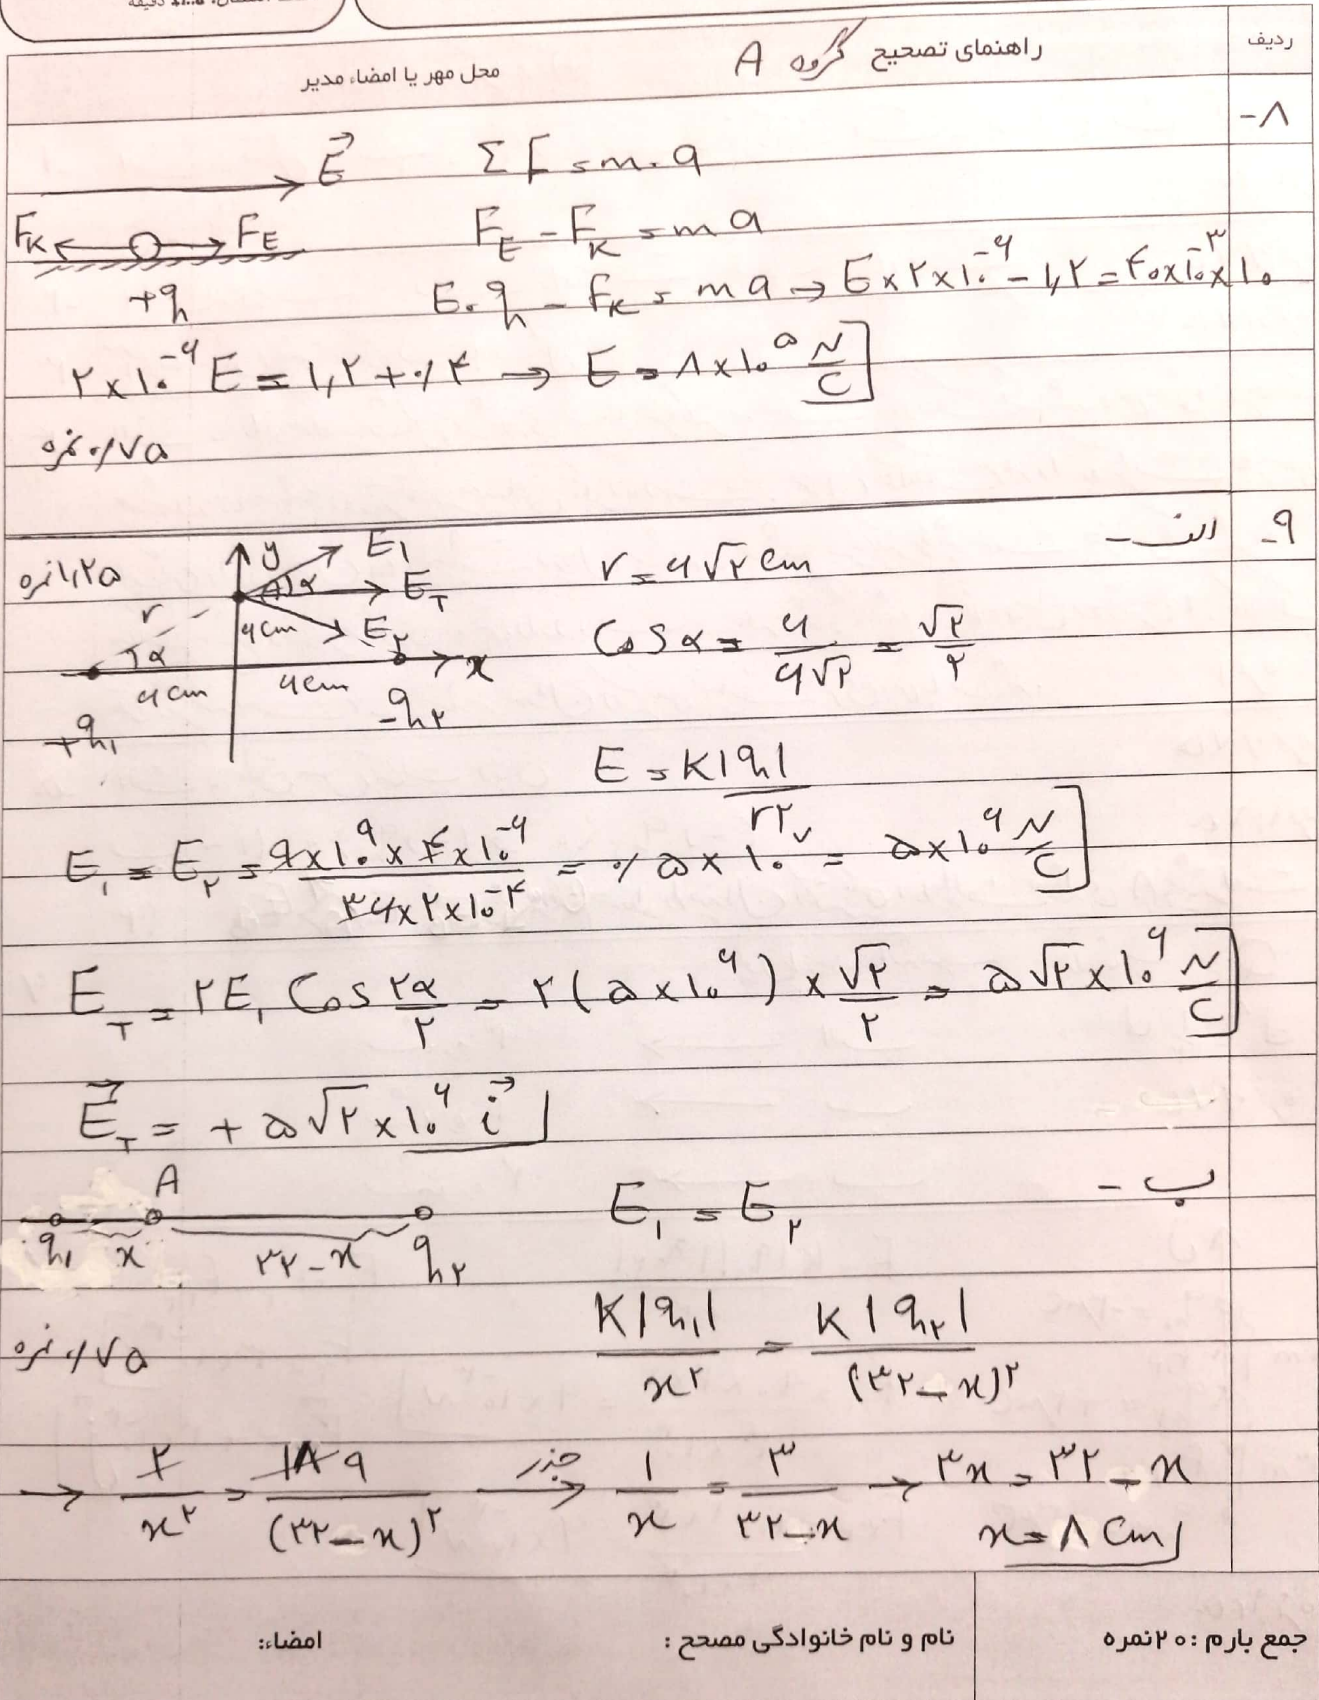 ردیف
راهنمای تصحیح گروه A
محل مهر یا امضاء مدیر
۸-
E⃗ Σ F = m.a
F_K F_E F_E - F_K = ma
+q E.q - F_K = ma → E×۲×۱۰^-۶ - ۱,۲ = ۴۰×۱۰^-۳×۱۰
۲×۱۰^-۶ E = ۱,۲ + ۰/۴ → E = ۸×۱۰^۵ N/C
۰/۷۵ نمره
۹- الف-
۱/۲۵ نمره
y E_۱ A α E_T r ۶cm E_۲ α x ۶cm ۶cm +q_۱ -q_۲
r = ۶√۲ cm
Cos α = ۶/۶√۲ = √۲/۲
E = K|q|/r^۲
E_۱ = E_۲ = ۹×۱۰^۹×۴×۱۰^-۶/۳۶×۲×۱۰^-۴ = ۰/۵×۱۰^۷ = ۵×۱۰^۶ N/C
E_T = ۲E_۱ Cos ۲α/۲ = ۲(۵×۱۰^۶)×√۲/۲ = ۵√۲×۱۰^۶ N/C
E⃗_T = +۵√۲×۱۰^۶ i⃗
ب-
A E_۱ = E_۲
q_۱ x ۳۲-x q_۲
K|q_۱|/x^۲ = K|q_۲|/(۳۲-x)^۲
۰/۷۵ نمره
→ ۲/x^۲ = ۱۸ ۹/(۳۲-x)^۲ جذر → ۱/x = ۳/۳۲-x → ۳x = ۳۲-x
x = ۸ Cm
جمع بارم : ۲۰ نمره
نام و نام خانوادگی مصحح :
امضاء: